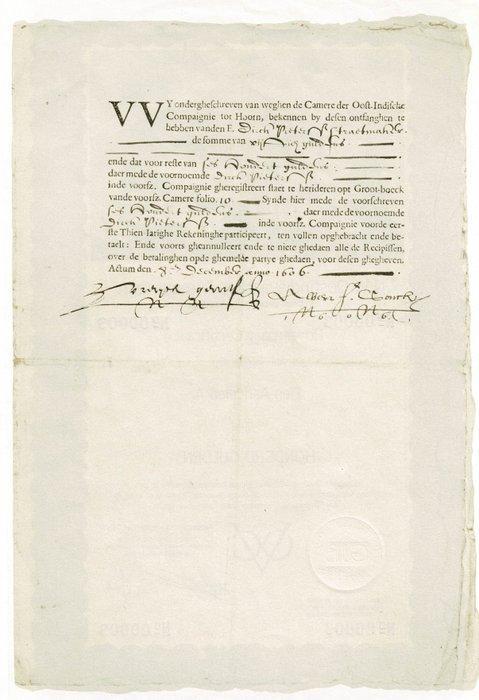 WY ondergheschreven van weghen de Camere der Oost-Indische
Compaignie tot Hoorn, bekennen by desen ontfanghen te
hebben vanden E. Dirck Pietersz Straetmaker
de somme van
ende dat voor reste van ses hondert guldens
daer mede de voornoemde Dirck Pietersz
inde voorsz. Compaignie gheregistreert staet te herideren op t Groot-boeck
vande voorsz. Camere folio. 10 Synde hier mede de voorschreven
ses hondert guldens daer mede de voornoemde
Dirck Pietersz inde voorsz. Compaignie voorde eer-
ste Thien Iarighe Rekeninghe participeert, ten vollen opghebracht ende be-
taelt: Ende voorts gheannulleert ende te niete ghedaen alle de Recipissen,
over de betalinghen opde ghemelde partye ghedaen, voor desen ghegheven.
Actum den December anno 1606